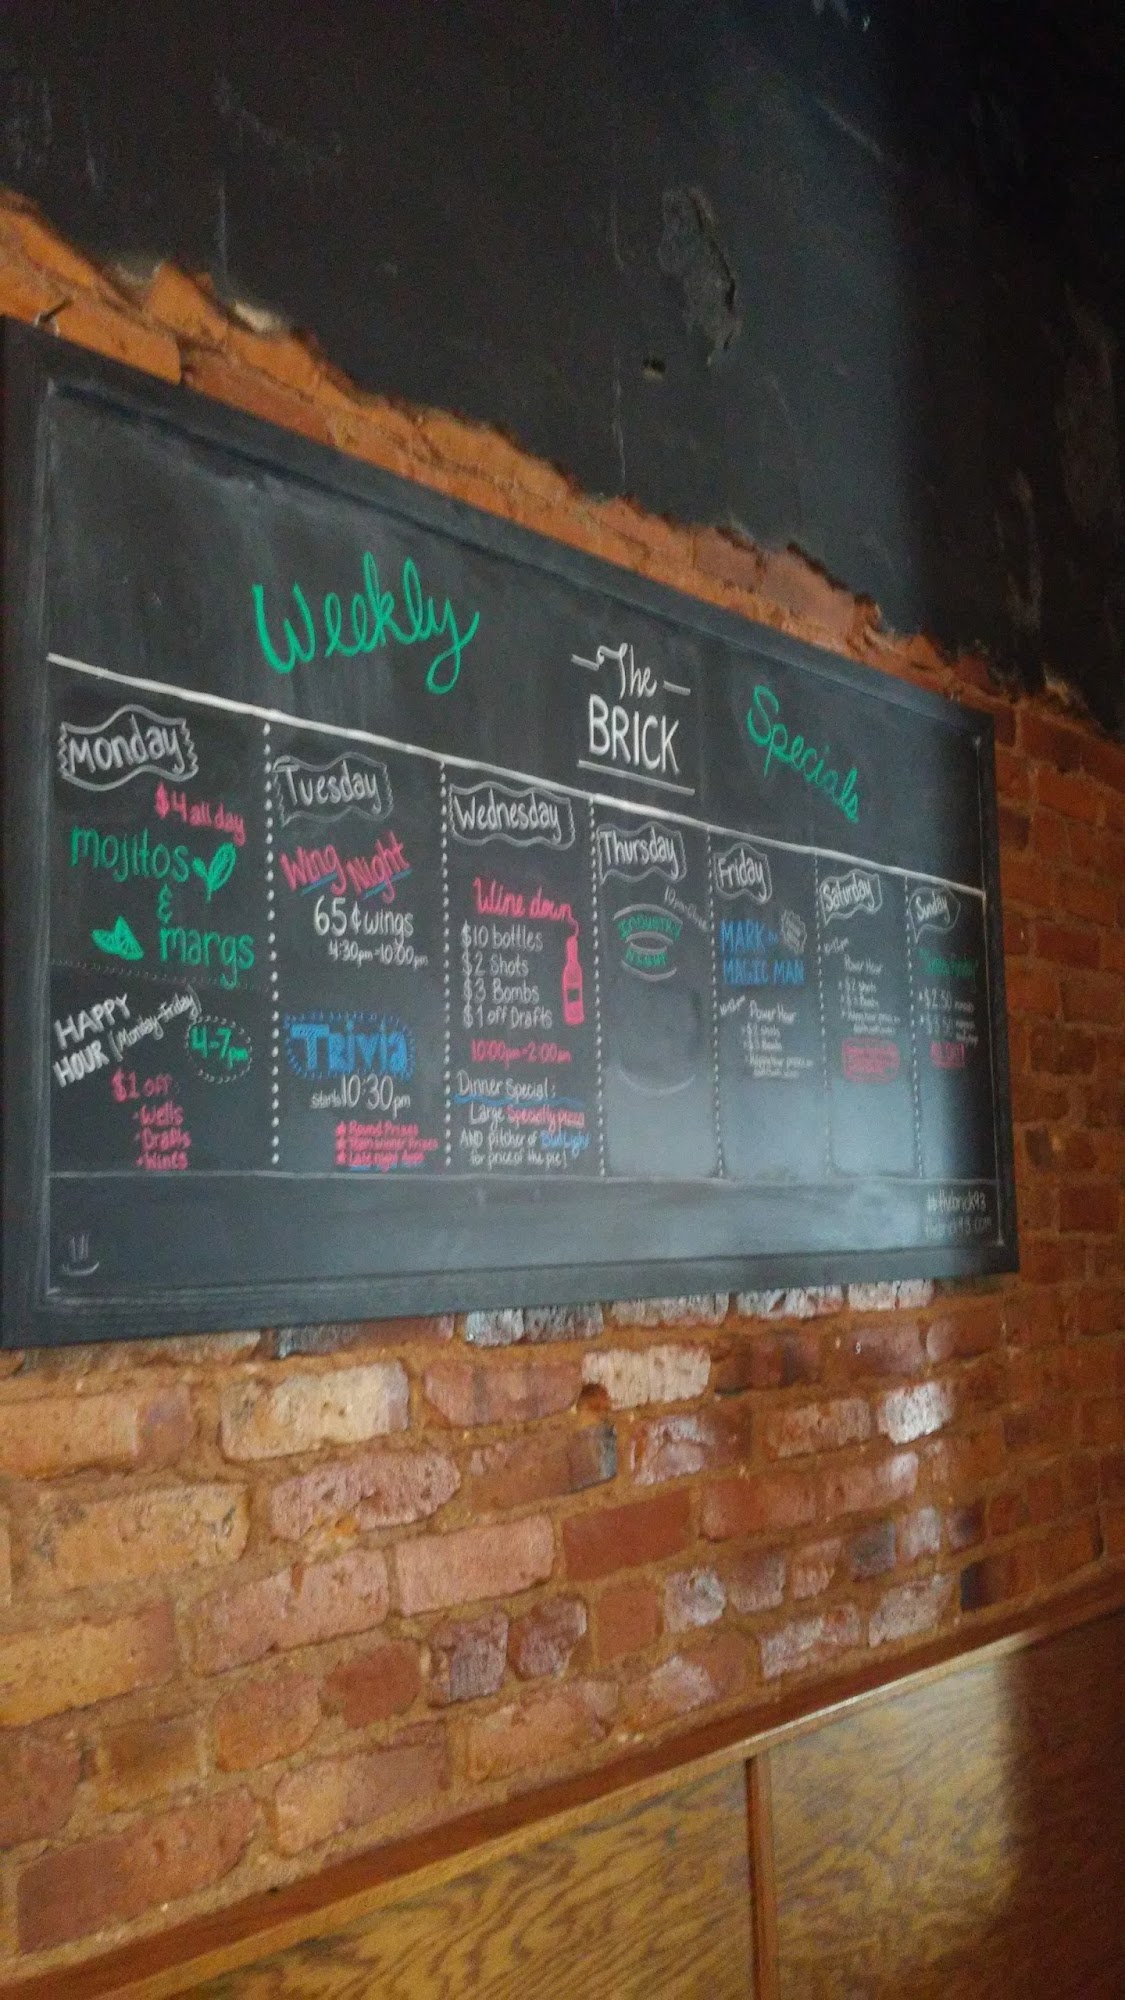 Weekly
The
BRICK
Specials
Monday
$4 all day
mojitos
&
margs
HAPPY
HOUR (Monday-Friday)
4-7pm
$1 off:
•Wells
•Drafts
•Wines
Tuesday
Wing Night
65¢ wings
4:30pm-10:00pm
Trivia
starts 10:30pm
Round Prizes
Team winner Prizes
Late night Apps
Wednesday
Wine down
$10 bottles
$2 Shots
$3 Bombs
$1 off Drafts
10:00pm-2:00am
Dinner Special:
Large Specialty pizza
AND pitcher of Bud Light
for price of the pie!
Thursday
INDUSTRY
NIGHT
Friday
MARK the
MAGIC MAN
Power Hour
Saturday
Power Hour
Sunday
"Sunday Funday"
•$2.50
#thebrick93
thebrick93.com